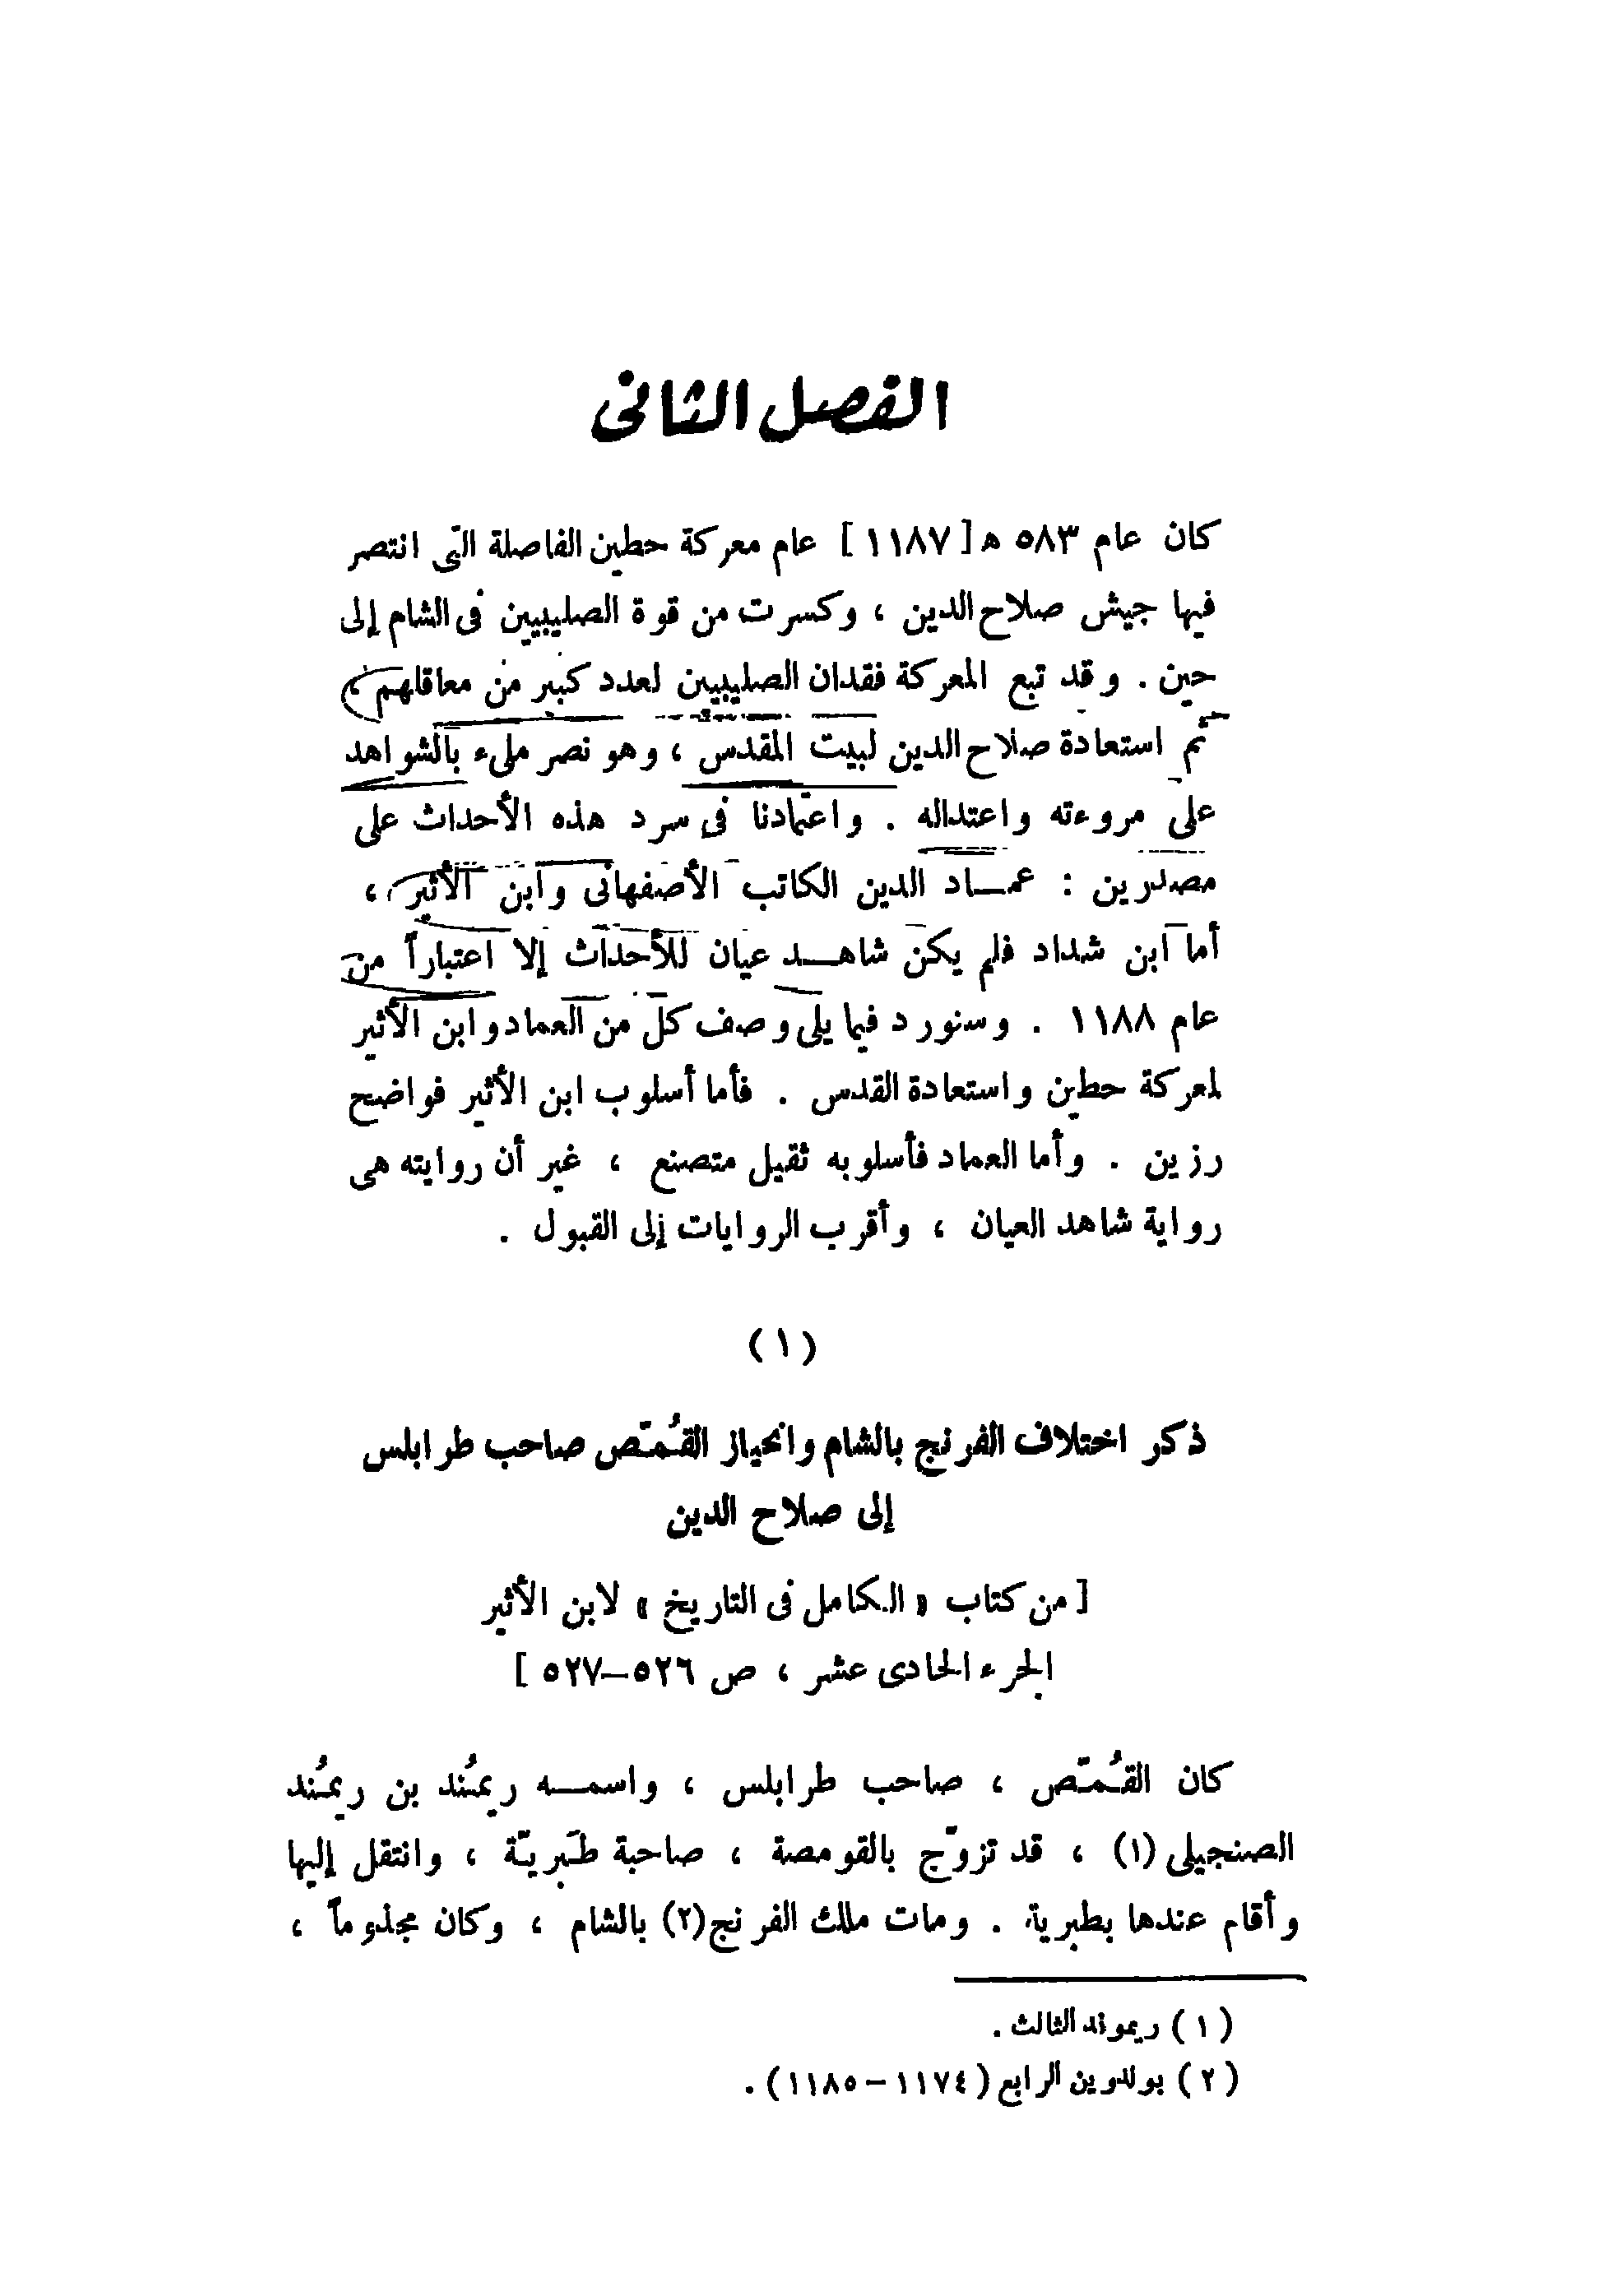 الفصل الثانى
كان عام ٥٨٣ ه [ ١١٨٧ ] عام معركة حطين الفاصلة التى انتصر
فيها جيش صلاح الدين ، وكسرت من قوة الصليبيين فى الشام إلى
حين . وقد تبع المعركة فقدان الصليبيين لعدد كبير من معاقلهم ،
ثم استعادة صلاح الدين لبيت المقدس ، وهو نصر ملىء بالشواهد
على مروءته واعتداله . واعتمادنا فى سرد هذه الأحداث على
مصدرين : عمــاد الدين الكاتب الأصفهانى وابن الأثير ،
أما ابن شداد فلم يكن شاهــد عيان للأحداث إلا اعتباراً من
عام ١١٨٨ . وسنورد فيما يلى وصف كل من العماد وابن الأثير
لمعركة حطين واستعادة القدس . فأما أسلوب ابن الأثير فواضح
رزين . وأما العماد فأسلوبه ثقيل متصنع ، غير أن روايته هى
رواية شاهد العيان ، وأقرب الروايات إلى القبول .
( ١ )
ذكر اختلاف الفرنج بالشام وانحياز القُمّص صاحب طرابلس
إلى صلاح الدين
[ من كتاب « الكامل فى التاريخ » لابن الأثير
الجزء الحادى عشر ، ص ٥٢٦–٥٢٧ ]
كان القُمّص ، صاحب طرابلس ، واسمــه ريمُند بن ريمُند
الصنجيلى (١) ، قد تزوّج بالقومصة ، صاحبة طَبريّة ، وانتقل إليها
وأقام عندها بطبرية . ومات ملك الفرنج(٢) بالشام ، وكان مجذوماً ،
( ١ ) ريموند الثالث .
( ٢ ) بولدوين الرابع ( ١١٧٤ – ١١٨٥ ) .